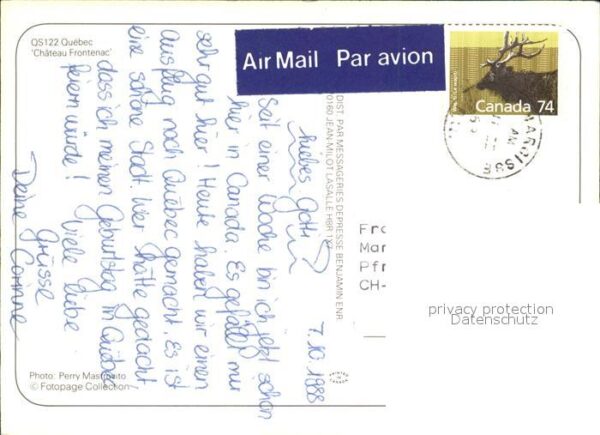 QS122 Québec
'Château Frontenac'
Air Mail Par avion
Canada 74
7.10.1988
Liebes Gotti
Seit einer Woche bin ich jetzt schon
hier in Canada. Es gefällt mir
sehr gut hier! Heute haben wir einen
Ausflug nach Québec gemacht. Es ist
eine schöne Stadt. Wer hätte gedacht,
dass ich meinen Geburtstag in Québec
feiern würde!
Viele liebe
Grüsse
Deine Corinne
DIST. PAR MESSAGERIES DEPRESSE BENJAMIN ENR.
JEAN-MILOT LASALLE H8R 1X7
Fra
Mar
Pfr
CH-
privacy protection
Datenschutz
Photo: Perry Mastrovito
© Fotopage Collection